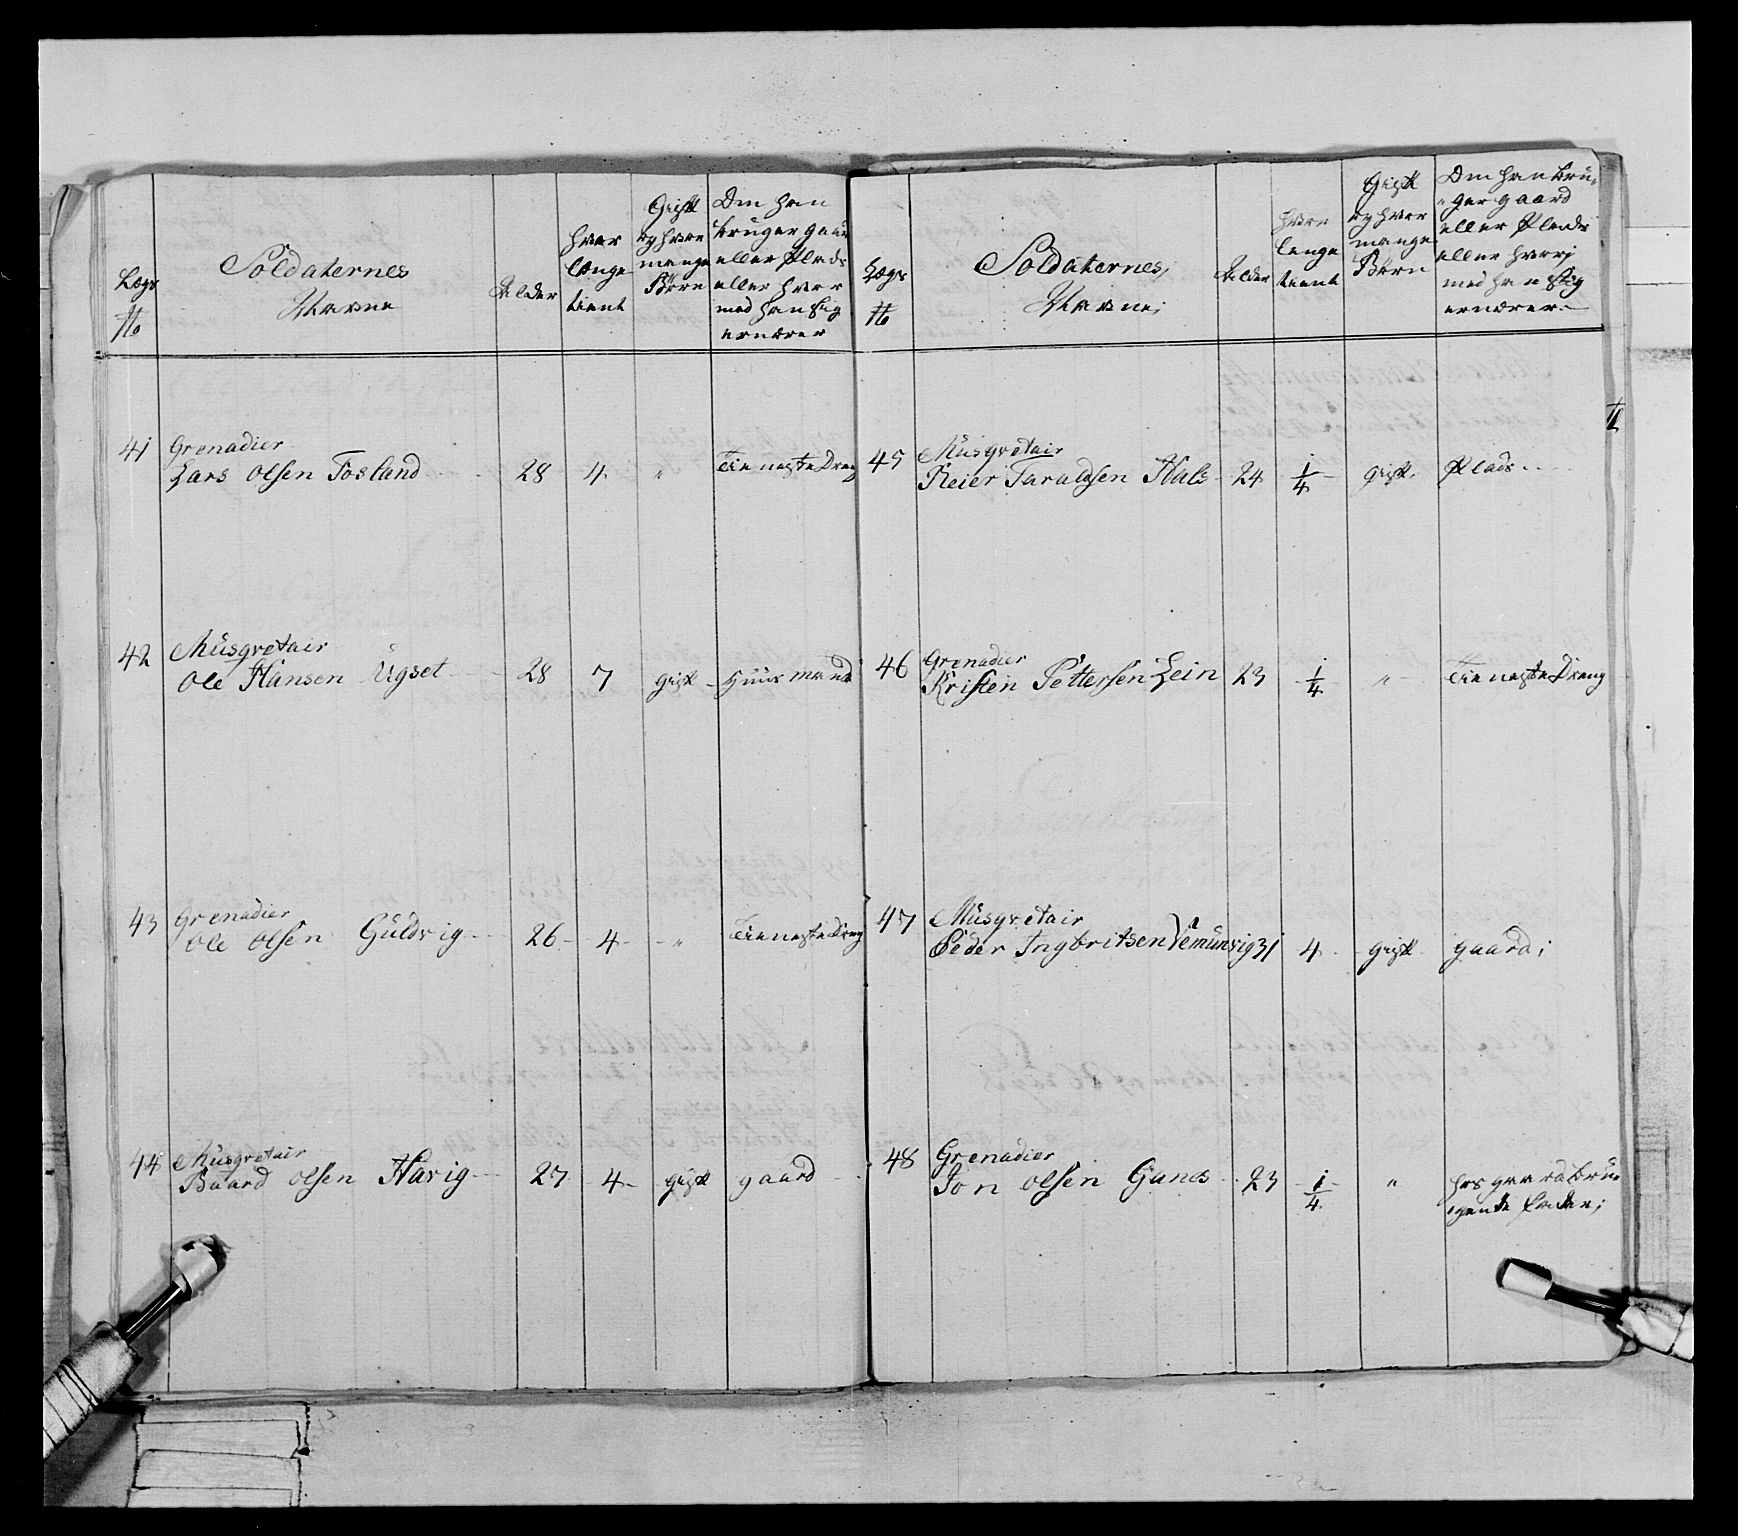 Legs
No
Soldaternes
Navne
Alder
hvor
længe
tient
Gift
og hvor
mange
Börn
Om han
bruger gaard
eller Plads
eller hvor
med han sig
ernærer
41
Grenadier
Lars Olsen Fosland
28
4
"
Tieneste Dreng
42
Musqvetair
Ole Hansen Ugset
28
7
gift
Huusmand
43
Grenadier
Ole Olsen Guldvig
26
4
"
Tieneste Dreng
44
Musqvetair
Baard Olsen Havig
27
4
gift
gaard
Legs
No
Soldaternes
Navne;
Alder
hvor
lenge
tient
Gift
og hvor
mange
Börn
Om han bru-
-ger gaard
eller Plads
eller hvori
med han sig
ernærer
45
Musqvetair
Reier Taraldsen Hals
24
1/4
gift
Plads
46
Grenadier
Kristen Pettersen Lein
23
1/4
"
Tieneste Dreng
47
Musqvetair
Peder Ingbritsen Vemunvig
31
4
gift
gaard;
48
Grenadier
Jon Olsen Ganes
23
1/4
"
hos gaardbru-
-gende Fader;